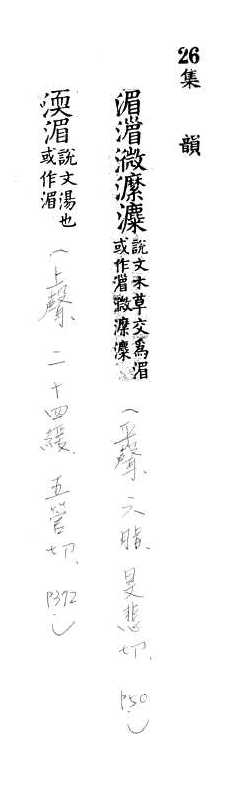 26 集韻
湄湣溦瀿㵟 說文水草交為湄或作湣溦瀿㵟（平聲、六脂、旻悲切、P50）
渜湄 說文湯也或作湄（上聲、二十四緩、五管切、P372）